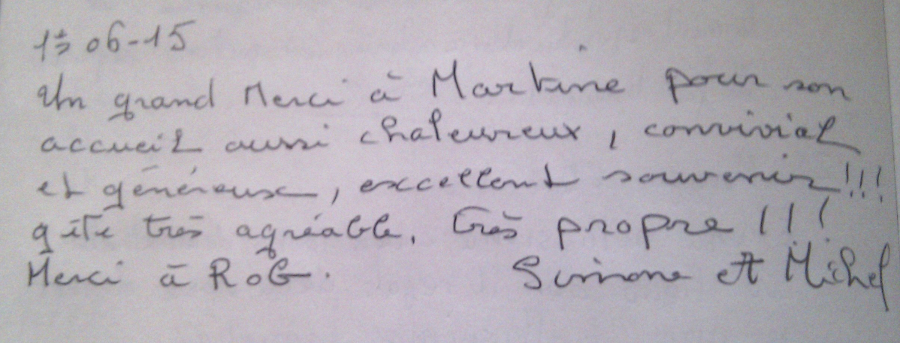 06-15
Un grand Merci à Martine pour son
accueil aussi chaleureux, convivial
et généreux, excellent souvenir!!!
gîte très agréable. très propre !!!
Merci à RoG. Simone et Michel